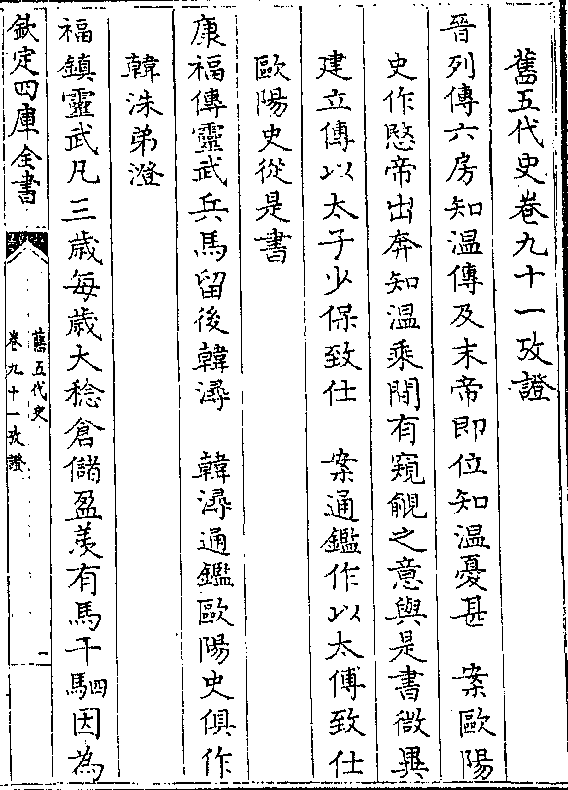 舊五代史卷九十一攷證
晉列傳六房知温傳及末帝即位知温憂甚　案歐陽
史作愍帝出奔知温乘間有窺覦之意與是書微異
建立傳以太子少保致仕　案通鑑作以太傅致仕
歐陽史從是書
康福傳靈武兵馬留後韓潯　韓潯通鑑歐陽史俱作
韓洙弟澄
福鎮靈武凡三歳每歳大稔倉儲盈羨有馬千駟因為
欽定四庫全書
舊五代史
卷九十一攷證
一